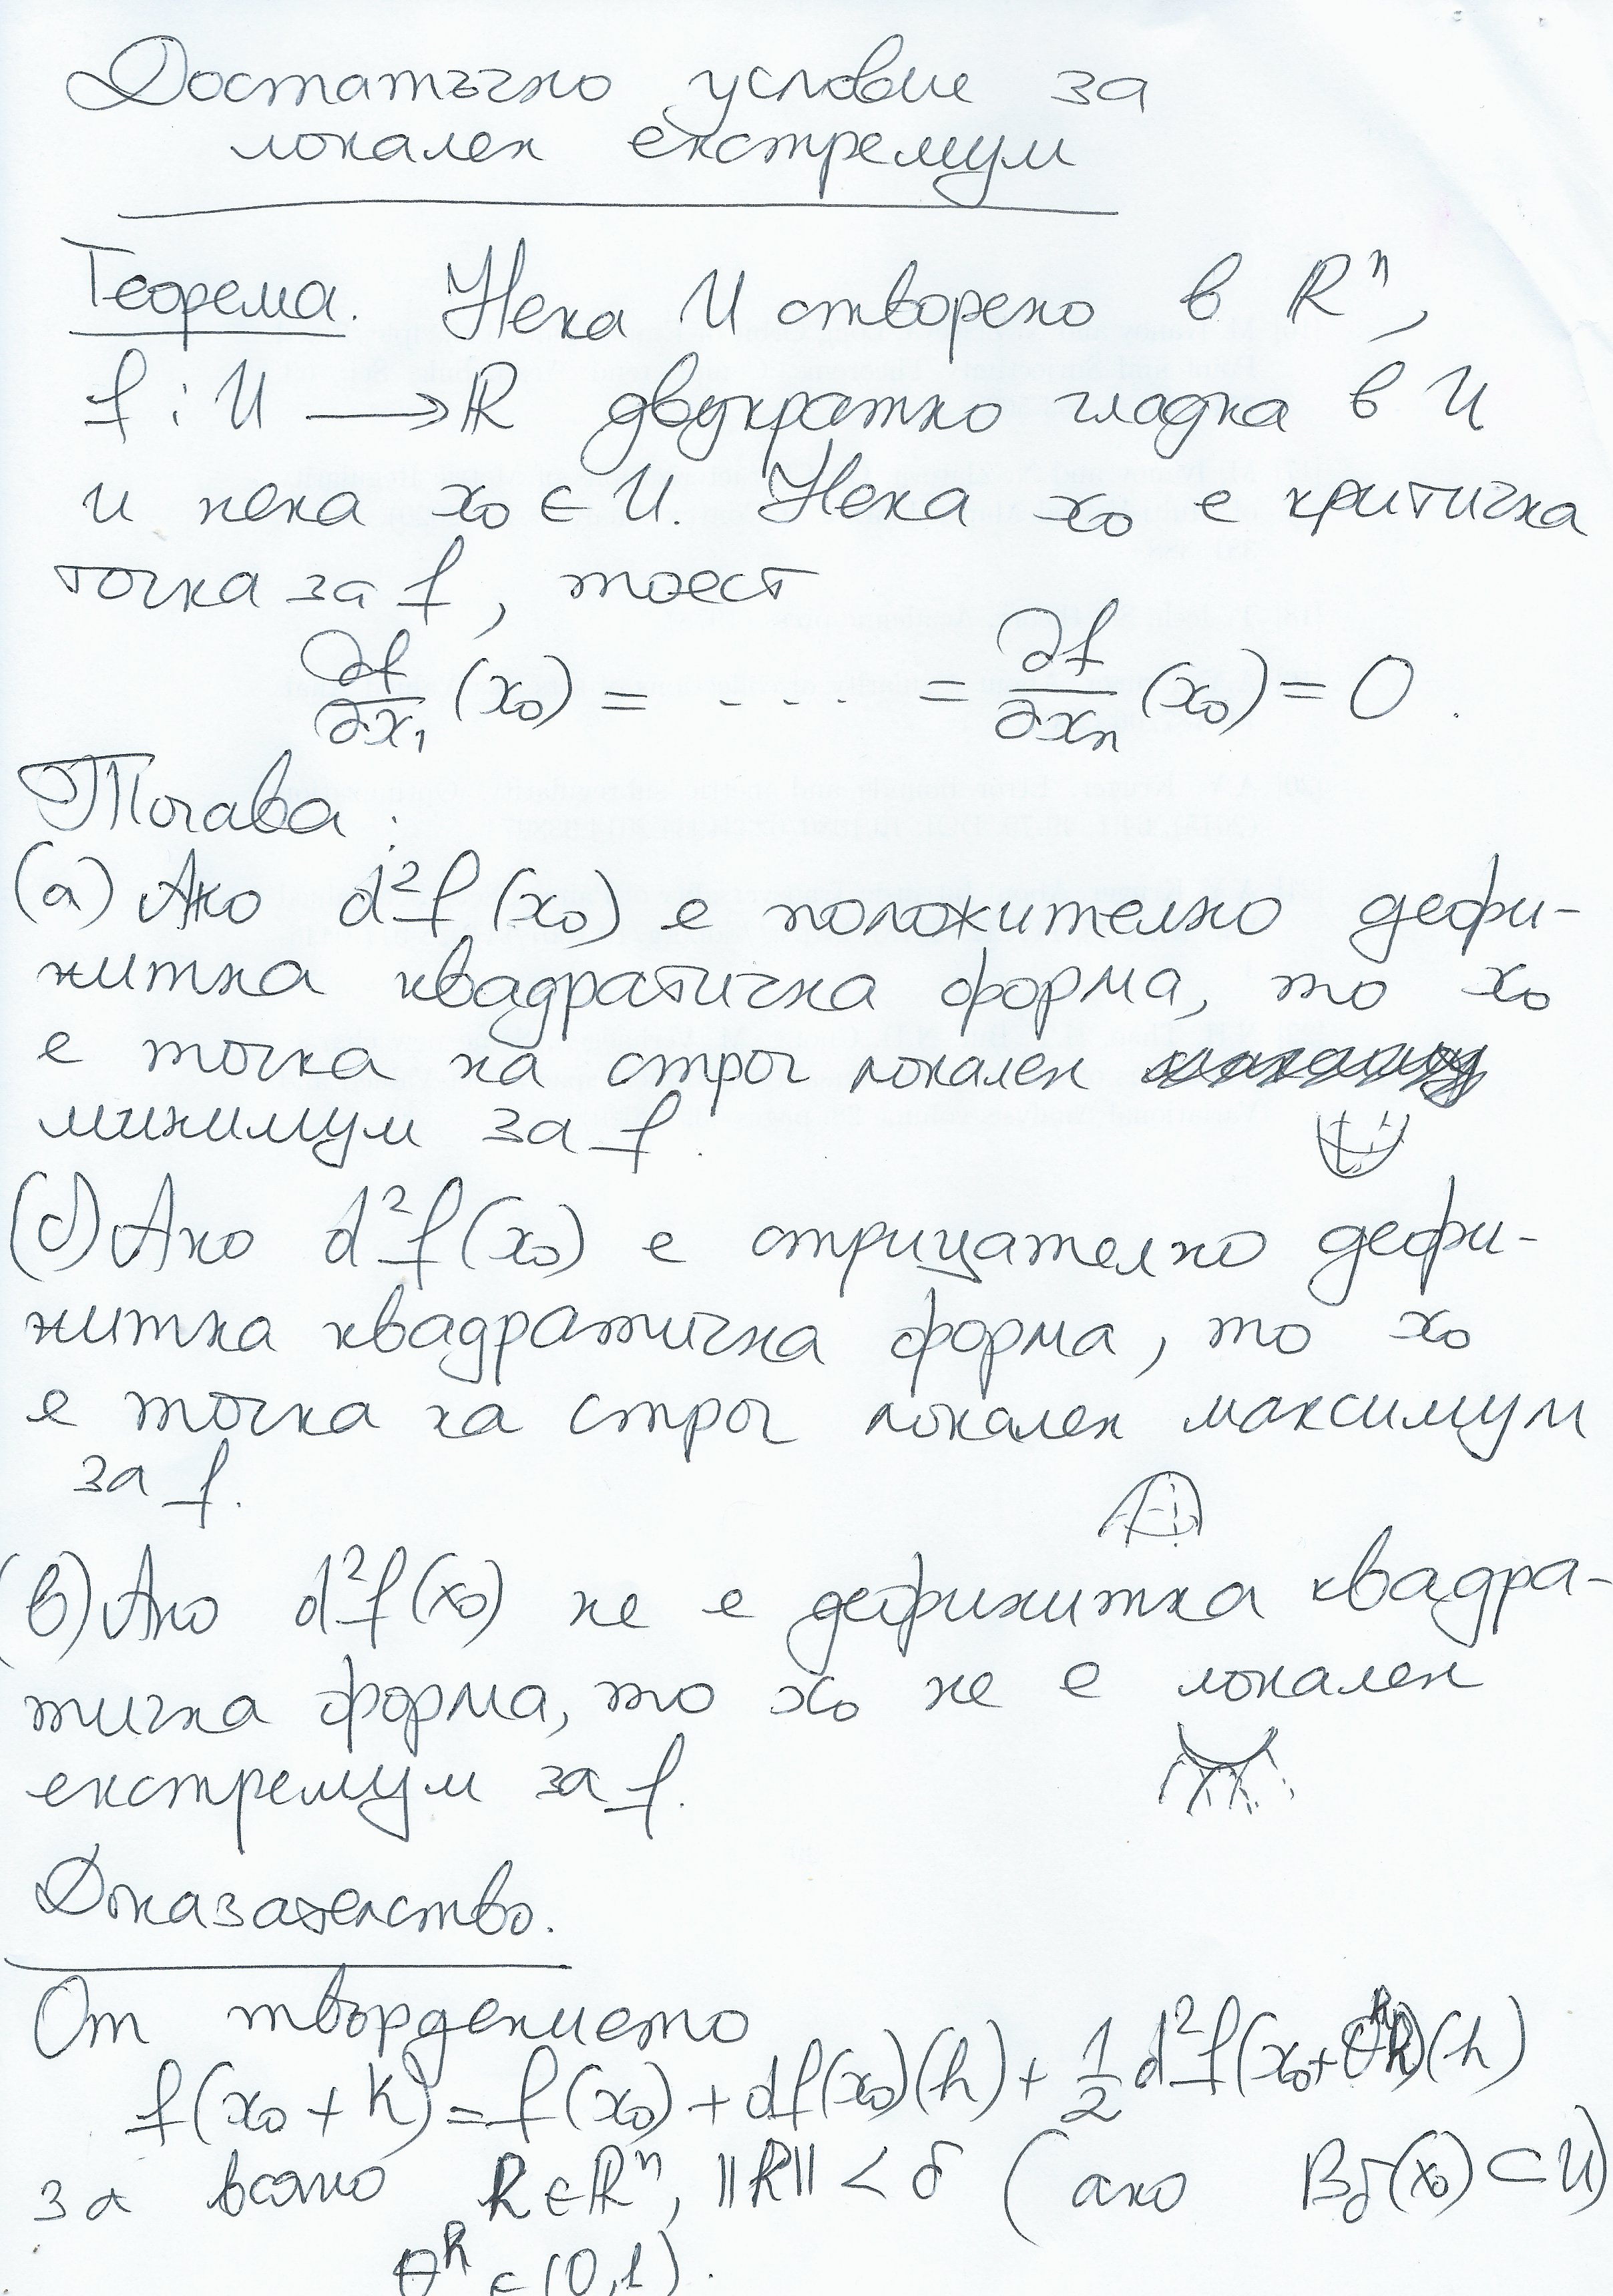 Достатъчно условие за
локален екстремум
Теорема. Нека U отворено в ℝⁿ,
f : U → ℝ двукратно гладка в U
и нека x₀ ∈ U. Нека x₀ е критична
точка за f, тоест
∂f/∂x₁ (x₀) = - - - - = ∂f/∂xₙ (x₀) = 0 .
Тогава :
(а) Ако d²f(x₀) е положително дефи-
нитна квадратична форма, то x₀
е точка на строг локален
минимум за f.
(б) Ако d²f(x₀) е отрицателно дефи-
нитна квадратична форма, то x₀
е точка на строг локален максимум
за f.
(в) Ако d²f(x₀) не е дефинитна квадра-
тична форма, то x₀ не е локален
екстремум за f.
Доказателство.
От твърдението
f(x₀ + h) = f(x₀) + df(x₀)(h) + 1/2 d²f(x₀+θʰh)(h)
за всяко h ∈ ℝⁿ, ||h|| < δ (ако Bδ(x₀) ⊂ U)
θʰ ∈ (0,1).